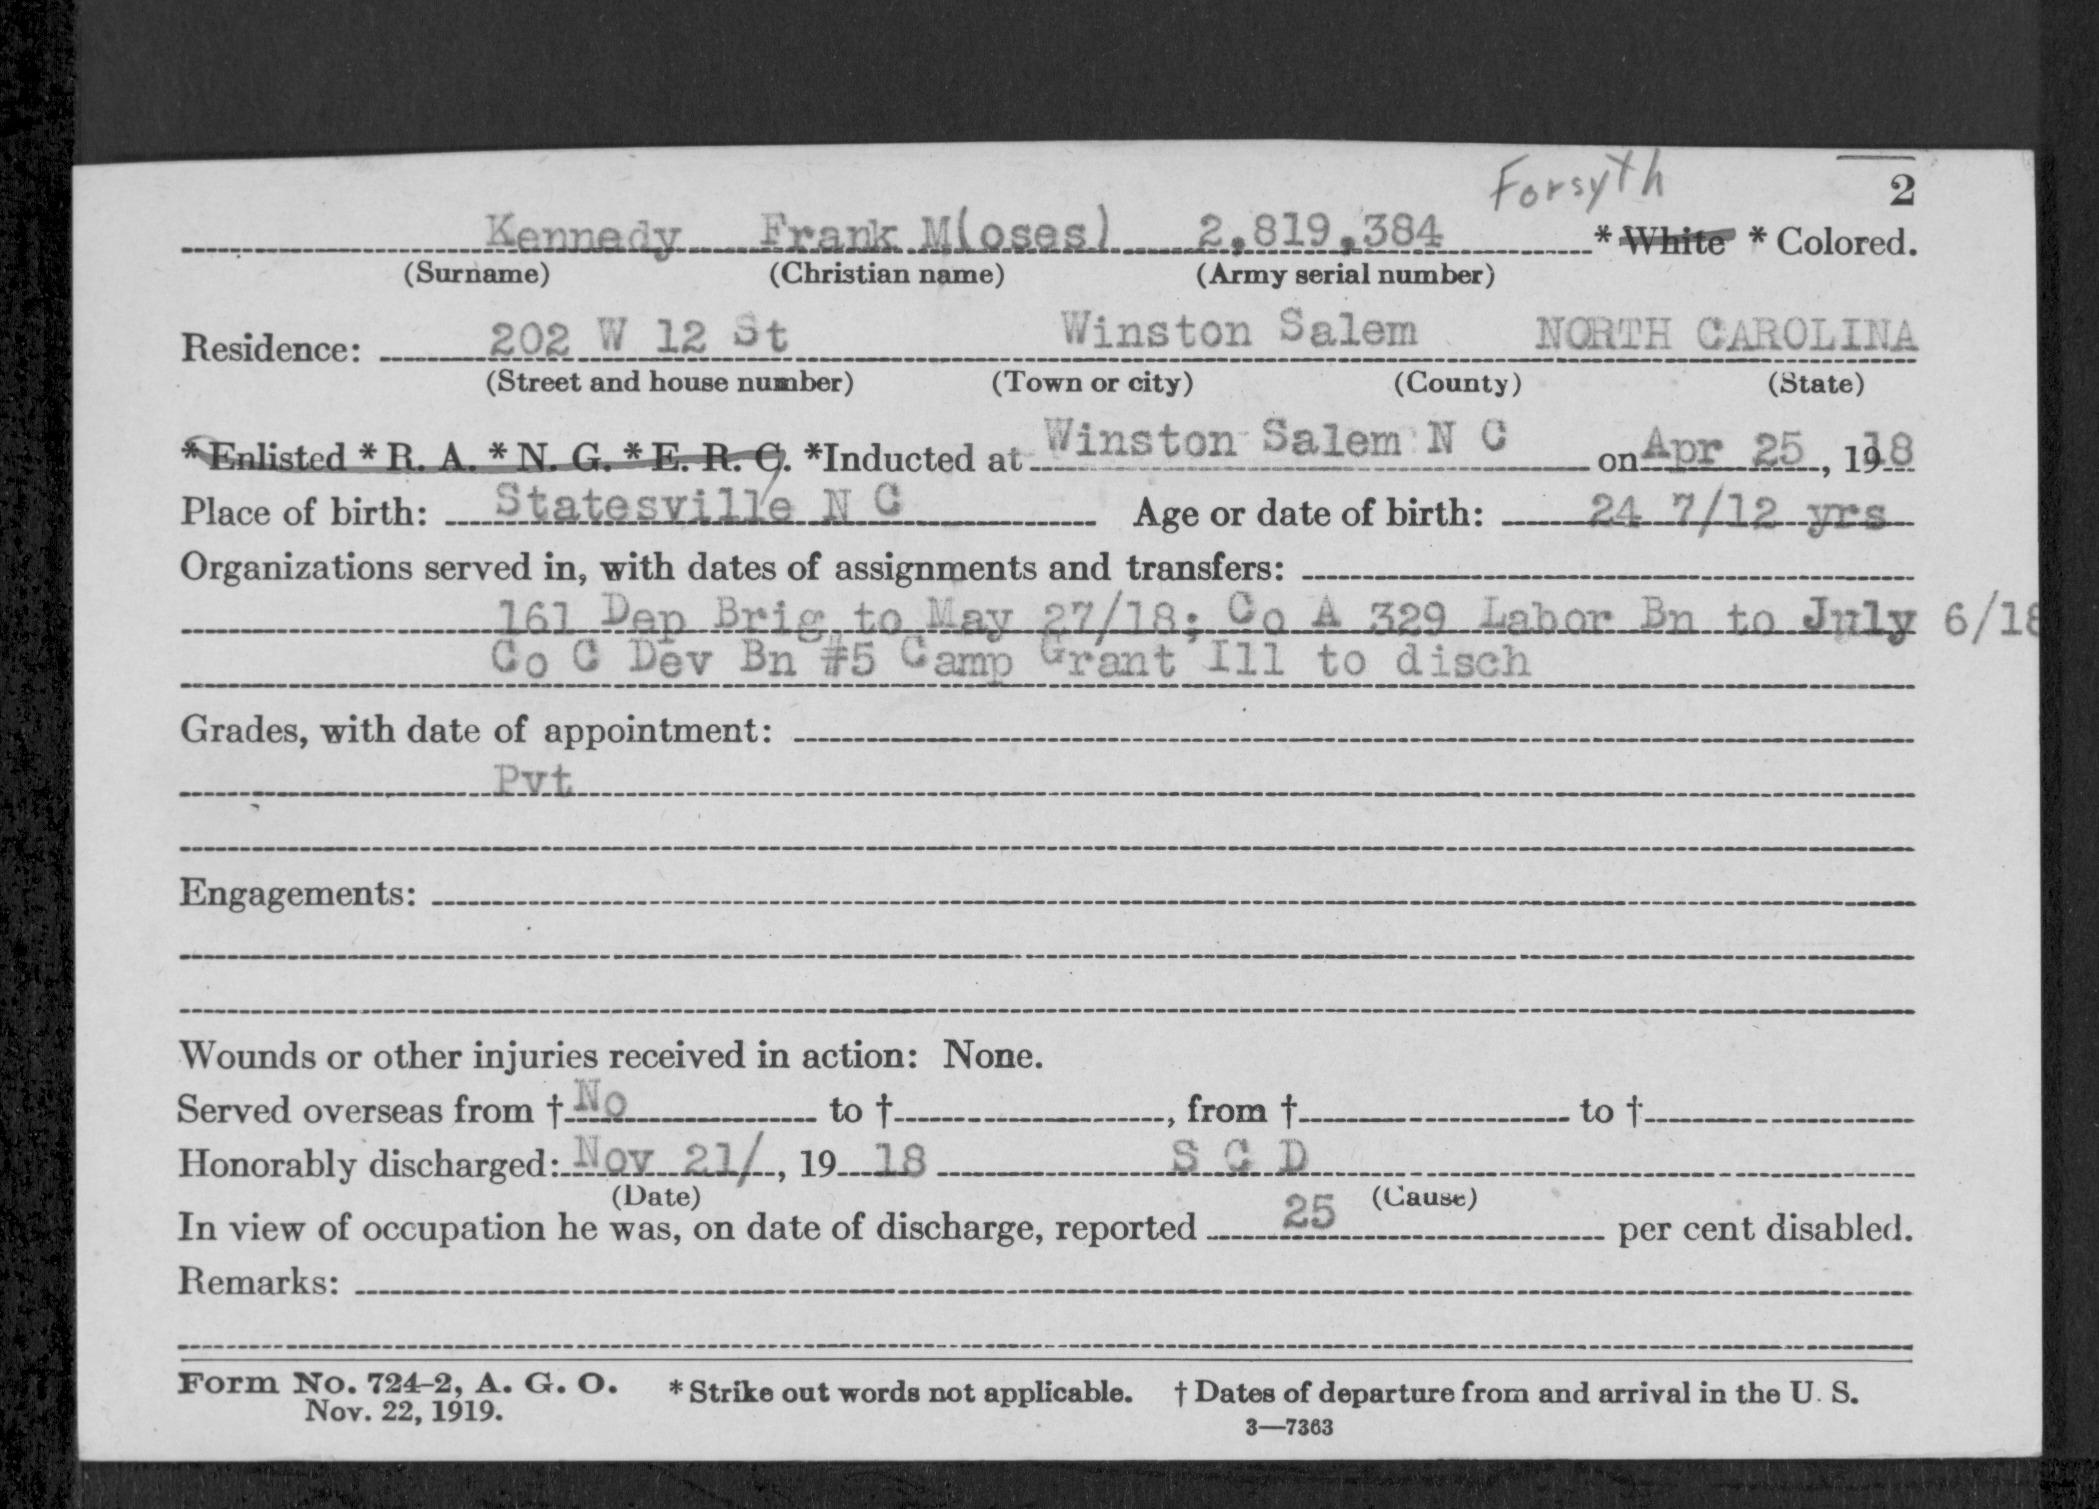 Forsyth
2
Kennedy Frank M(oses) 2,819,384 * White * Colored.
(Surname) (Christian name) (Army serial number)
Residence: 202 W 12 St Winston Salem NORTH CAROLINA
(Street and house number) (Town or city) (County) (State)
* Enlisted * R. A. * N. G. * E. R. C. *Inducted at Winston Salem N C on Apr 25, 1918
Place of birth: Statesville N C Age or date of birth: 24 7/12 yrs
Organizations served in, with dates of assignments and transfers:
161 Dep Brig to May 27/18; Co A 329 Labor Bn to July 6/18
Co C Dev Bn #5 Camp Grant Ill to disch
Grades, with date of appointment:
Pvt
Engagements:
Wounds or other injuries received in action: None.
Served overseas from † No to †, from † to †
Honorably discharged: Nov 21/, 19 18 S C D
(Date) (Cause)
In view of occupation he was, on date of discharge, reported 25 per cent disabled.
Remarks:
Form No. 724-2, A. G. O. * Strike out words not applicable. † Dates of departure from and arrival in the U. S.
Nov. 22, 1919.
3—7363